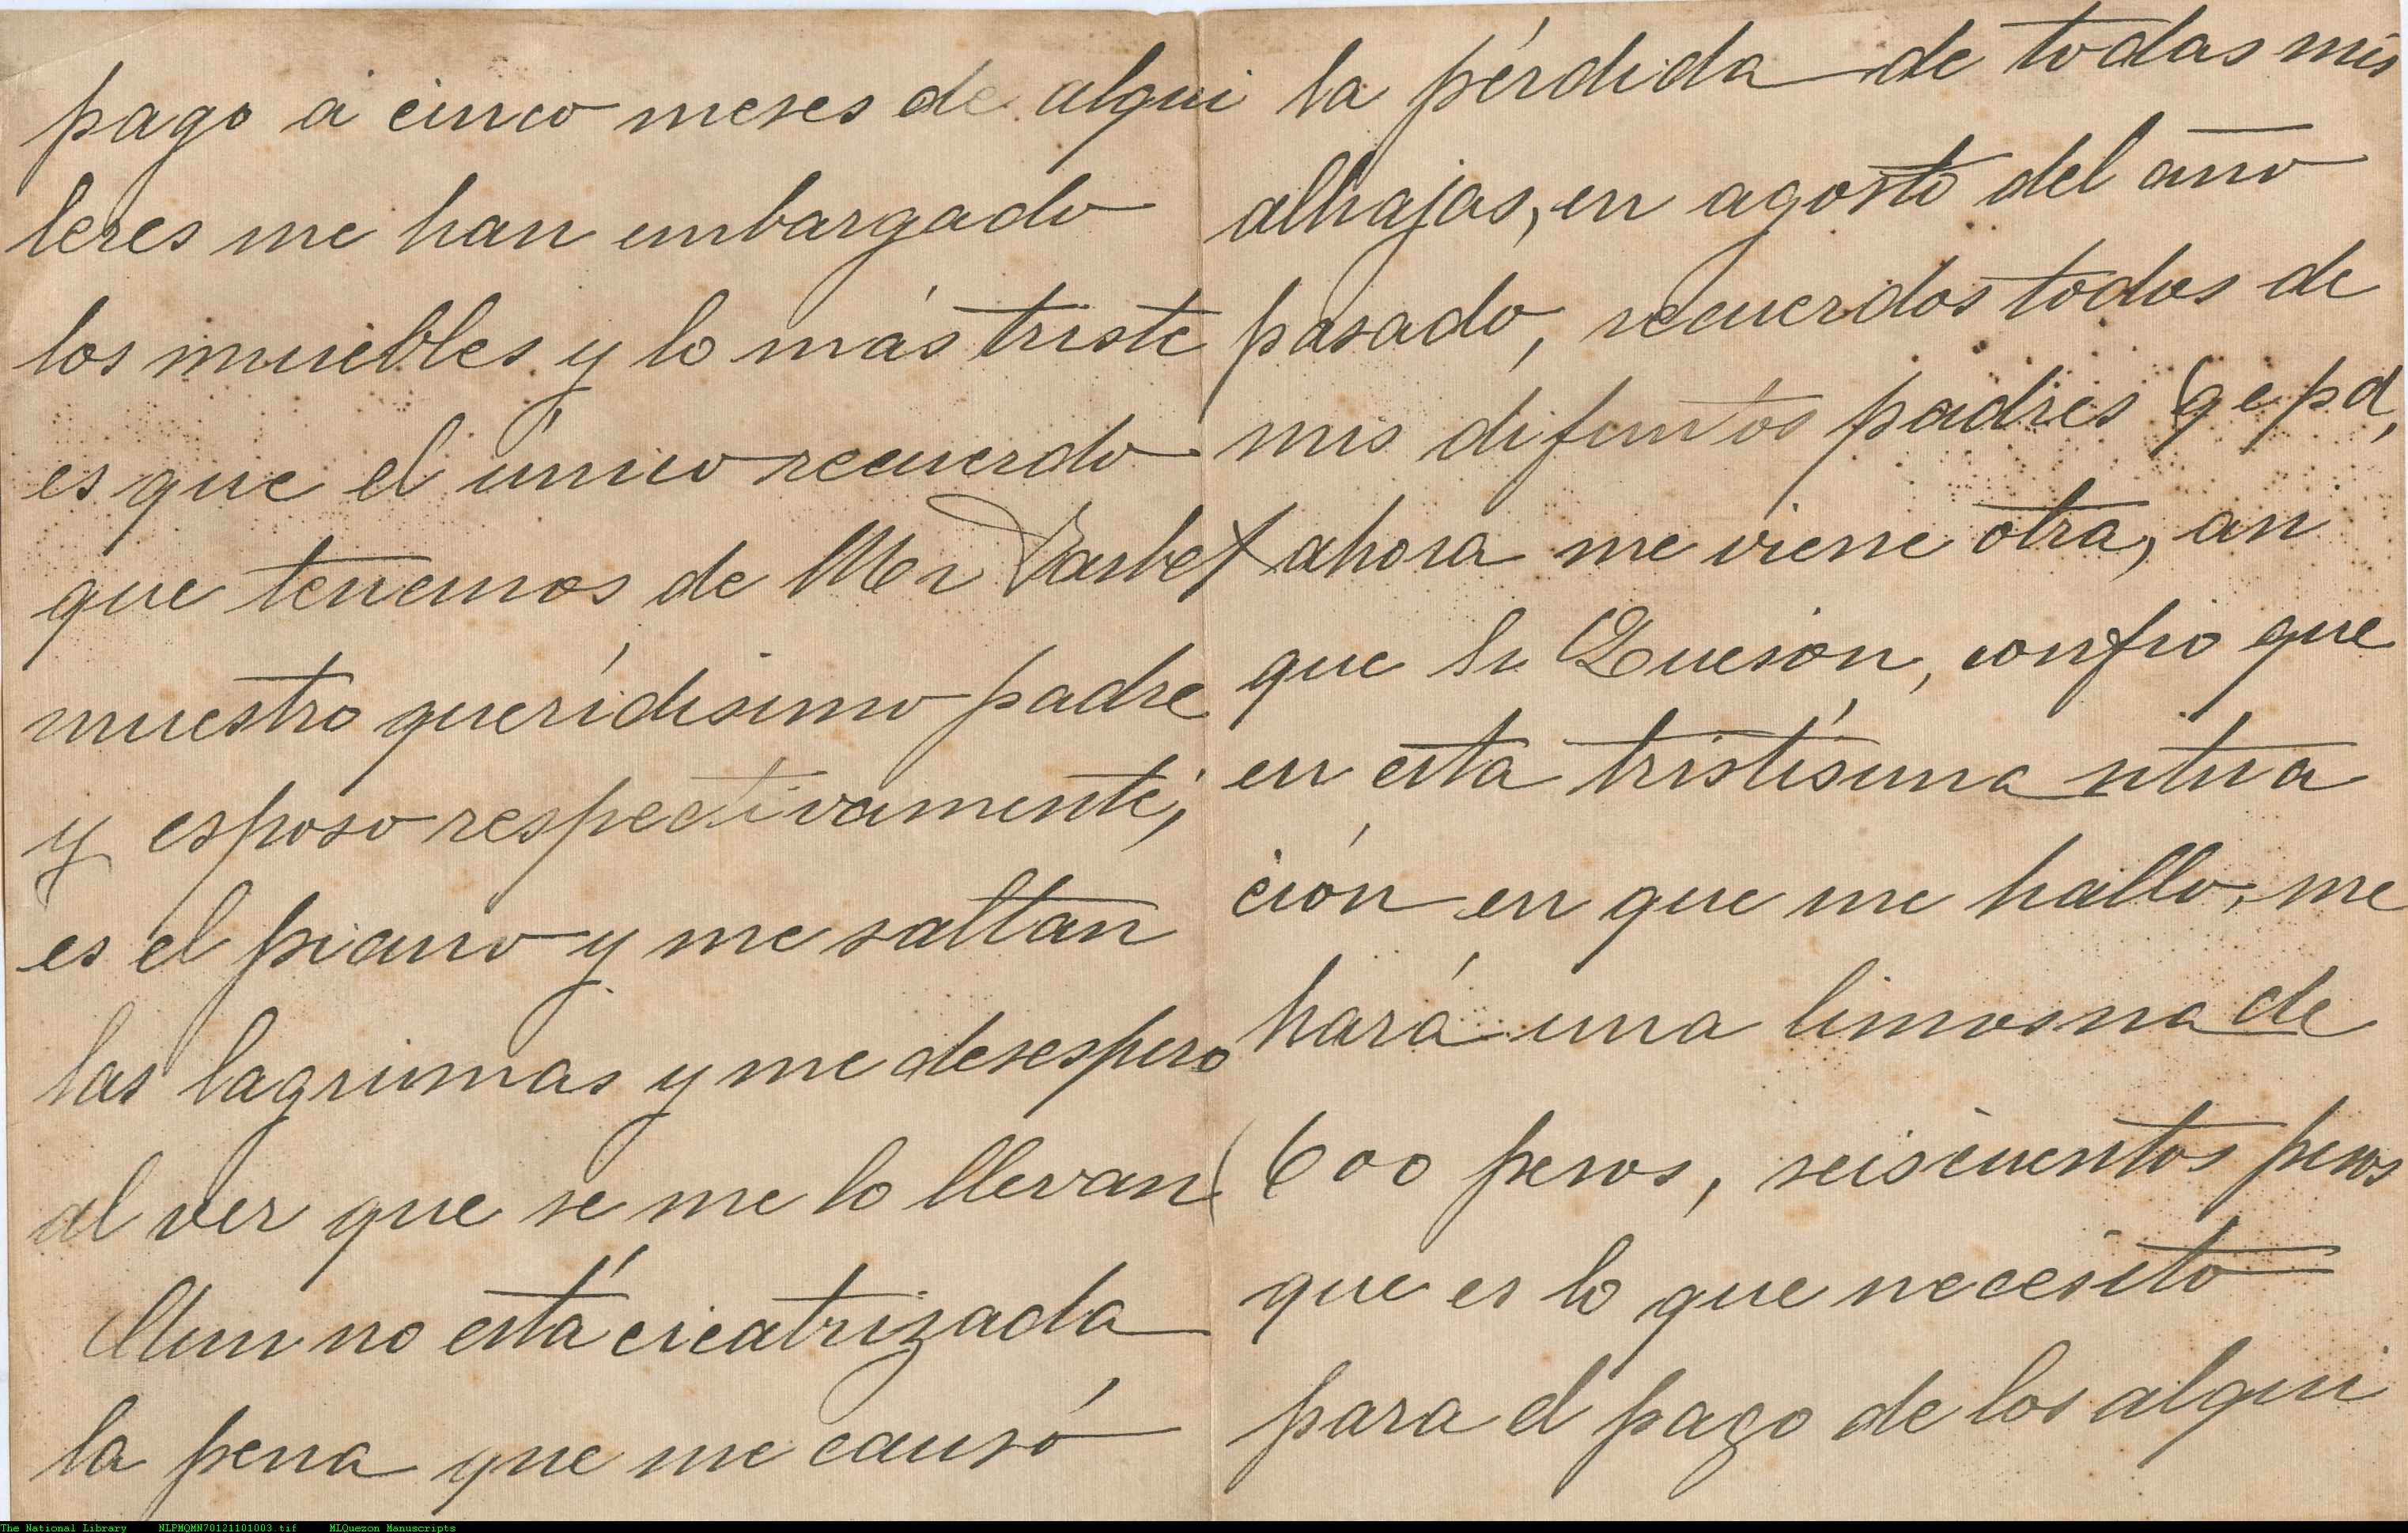 pago á cinco meses de alqui
leres me han embargado
los muebles y lo más triste
es que el único recuerdo
que tenemos de Mr
nuestro querídisimo padre
y esposo respectivamente;
es el piano y me saltan
las lagrimas y me desespero
al ver que se me lo llevan
Aun no está cicatrizada
la pena que me causó
la pérdida de todas mis
alhajas, en agosto del año
pasado, recuerdos todos de
mis difuntos padres (q e p d,
ahora me viene otra, an
que Sr Queson, confio que
en esta tristísima situa
ción en que me hallo, me
hará una limosna de
(600 pesos, seiscientos pesos
que es lo que necesito
para el pago de los alqui
The National Library NLPMQMN70121101003.tif MLQuezon Manuscripts